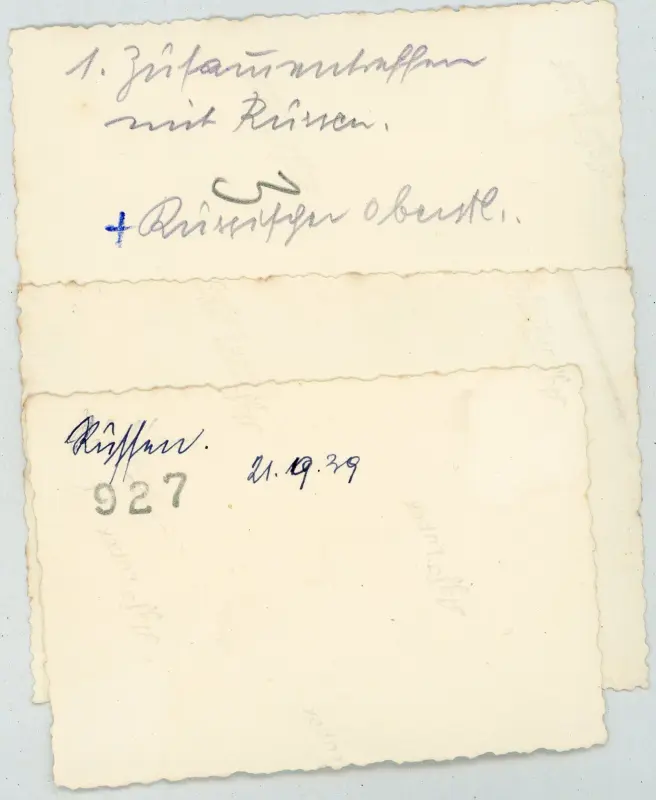 1. Zusammentreffen
mit Russen.
+ Russischer Oberstl.
Russen.
927